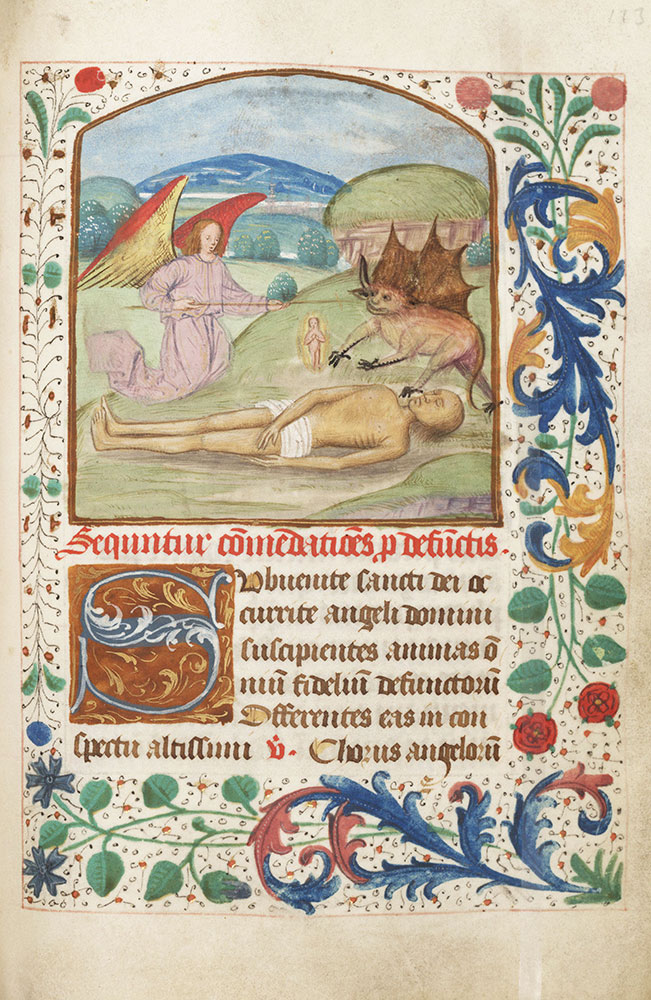 173
Sequntur cōmēdatiōes p̲ defūctis.
Subuenite sancti dei oc
currite angeli domini
suscipientes animas o᷒
niū fideliū defunctorū
Offerentes eas in con
spectu altissimi v̄. Chorus angelorū